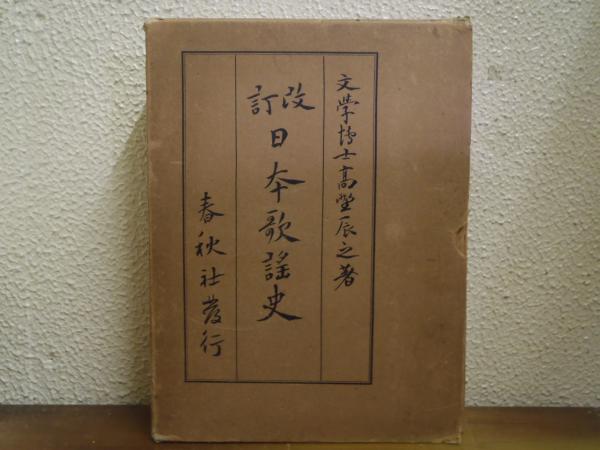 文學博士高野辰之著
改訂日本歌謠史
春秋社發行